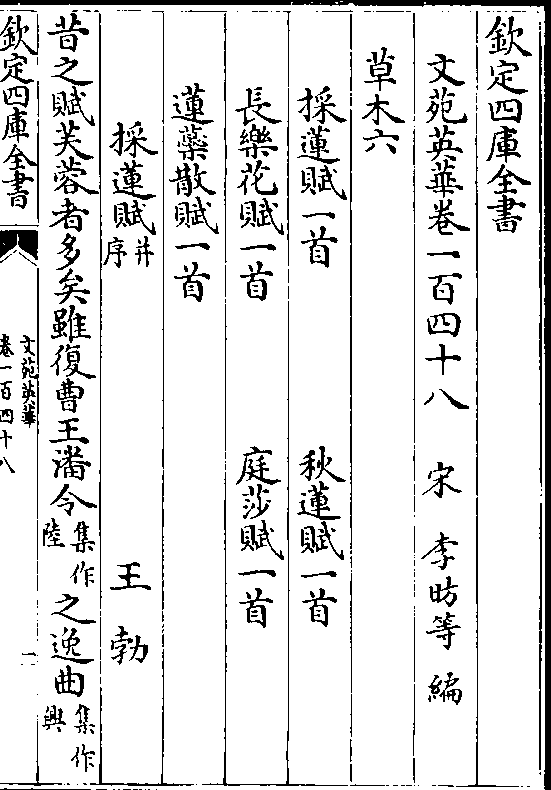 欽定四庫全書
文苑英華卷一百四十八 宋 李昉等 編
草木六
採蓮賦一首 秋蓮賦一首
長樂花賦一首 庭莎賦一首
蓮蘂散賦一首
採蓮賦并序 王勃
昔之賦芙蓉者多矣雖復曹王潘令集作陸之逸曲集作興
欽定四庫全書
文苑英華
卷一百四十八
二